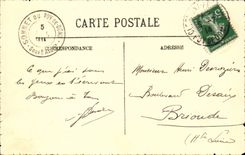 CARTE POSTALE
CORRESPONDANCE
ADRESSE
SOMMET DU
5
Ce que j'ai pour
les
Bonjour à tous
Monsieur Henri Desrozier
Boulevard Desaix
Brioude
(Hte Loire)